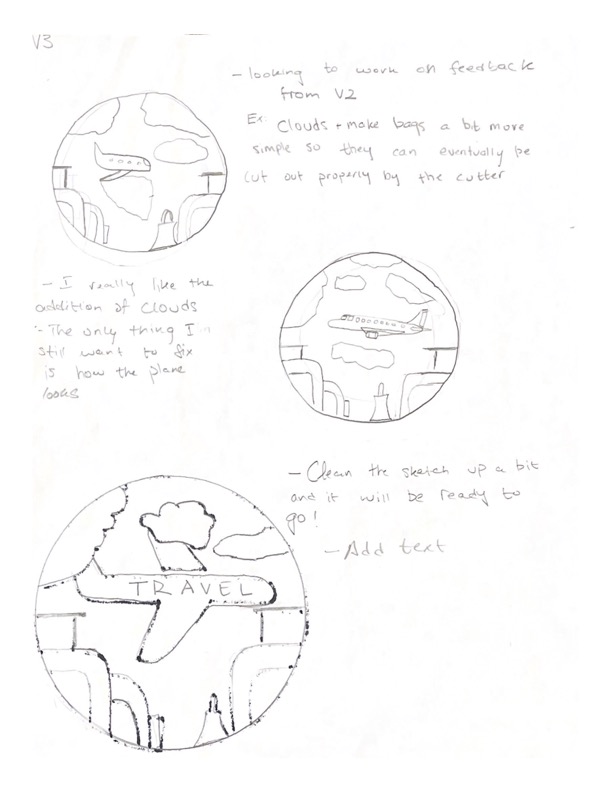 V3
- looking to work on feedback
from V2
Ex: Clouds + make bags a bit more
simple so they can eventually be
cut out properly by the cutter
- I really like the
addition of clouds
- The only thing I
still want to fix
is how the plane
looks
- Clean the sketch up a bit
and it will be ready to
go!
- Add text
TRAVEL